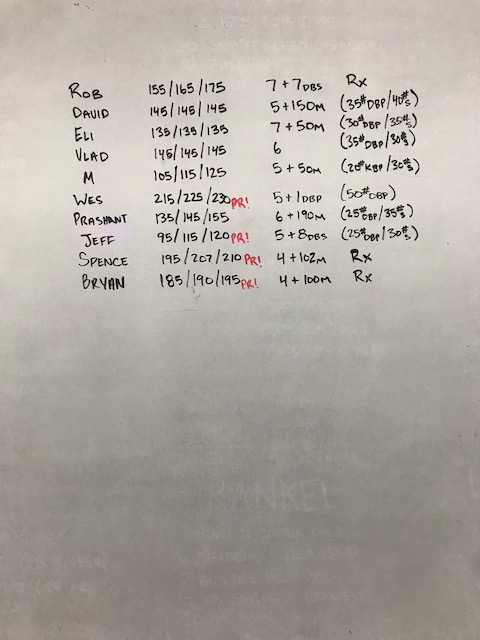 ROB 155/165/175 7+7DBS Rx
DAVID 145/145/145 5+150M (35#DBP/40#S)
ELI 135/135/135 7+50M (30#DBP/35#S)
VLAD 145/145/145 6 (35#DBP/30#S)
M 105/115/125 5+50M (20#KBP/30#S)
WES 215/225/230PR! 5+1DBP (50#DBP)
PRASHANT 135/145/155 6+190M (25#DBP/35#S)
JEFF 95/115/120PR! 5+8DBS (25#DBP/30#S)
SPENCE 195/207/210PR! 4+102M Rx
BRYAN 185/190/195PR! 4+100M Rx